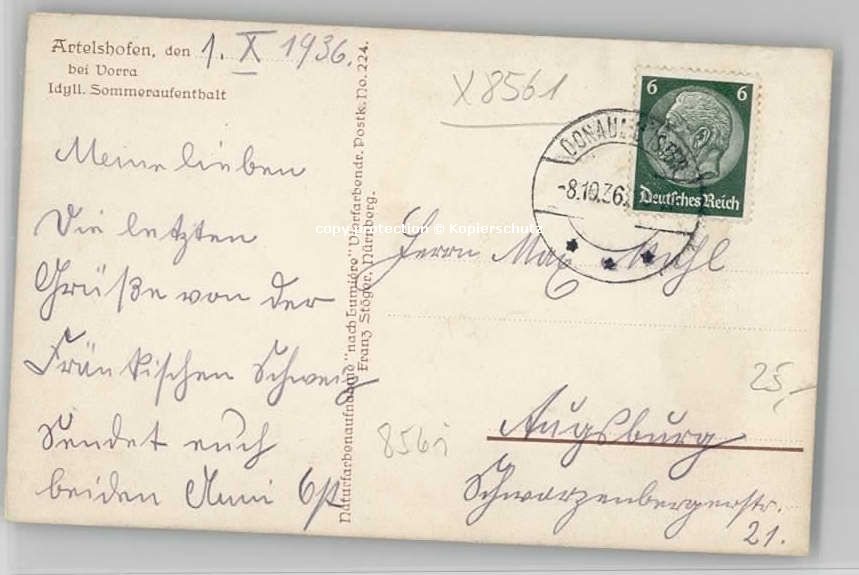 Artelshofen, den 1. X 1936.
bei Vorra
Idyll. Sommeraufenthalt
Meine lieben
Die letzten
Grüße von der
Fränkischen Schweiz
sendet euch
beiden Anni
Naturfarbenaufnahme "nach Lumière" Vierfarbendr. Postk. No. 224.
Franz Stöger, Nürnberg.
X 8561
6 6
Deutsches Reich
-8.10.36
copy protection © Kopierschutz
Herrn Max
25,-
8561
Augsburg
Schwarzenbergerstr.
21.